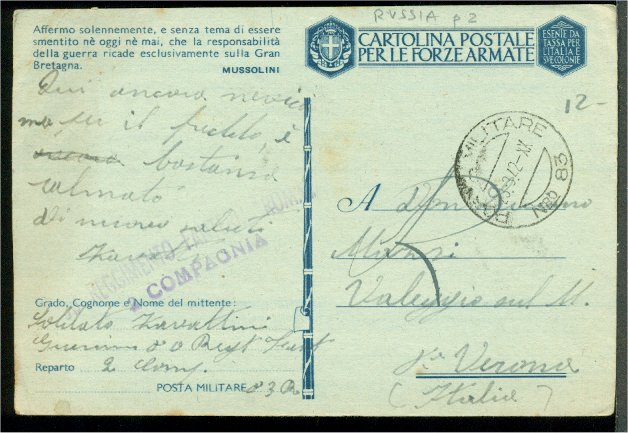 RUSSIA p2
Affermo solennemente, e senza tema di essere
smentito nè oggi nè mai, che la responsabilità
della guerra ricade esclusivamente sulla Gran
Bretagna.
MUSSOLINI
CARTOLINA POSTALE
PER LE FORZE ARMATE
ESENTE DA
TASSA PER
L'ITALIA E
SUE COLONIE
12-
Qui ancora nevica
ma per il freddo, è
bastanza
calmato
Di nuovo saluti
REGIMENTO
2 COMPAGNIA
MILITARE
83
A Don
Valeggio sul M.
Verona
(Italia)
Grado, Cognome e Nome del mittente:
Soldato Zavattini
Reparto 2 Comp.
POSTA MILITARE 83 R